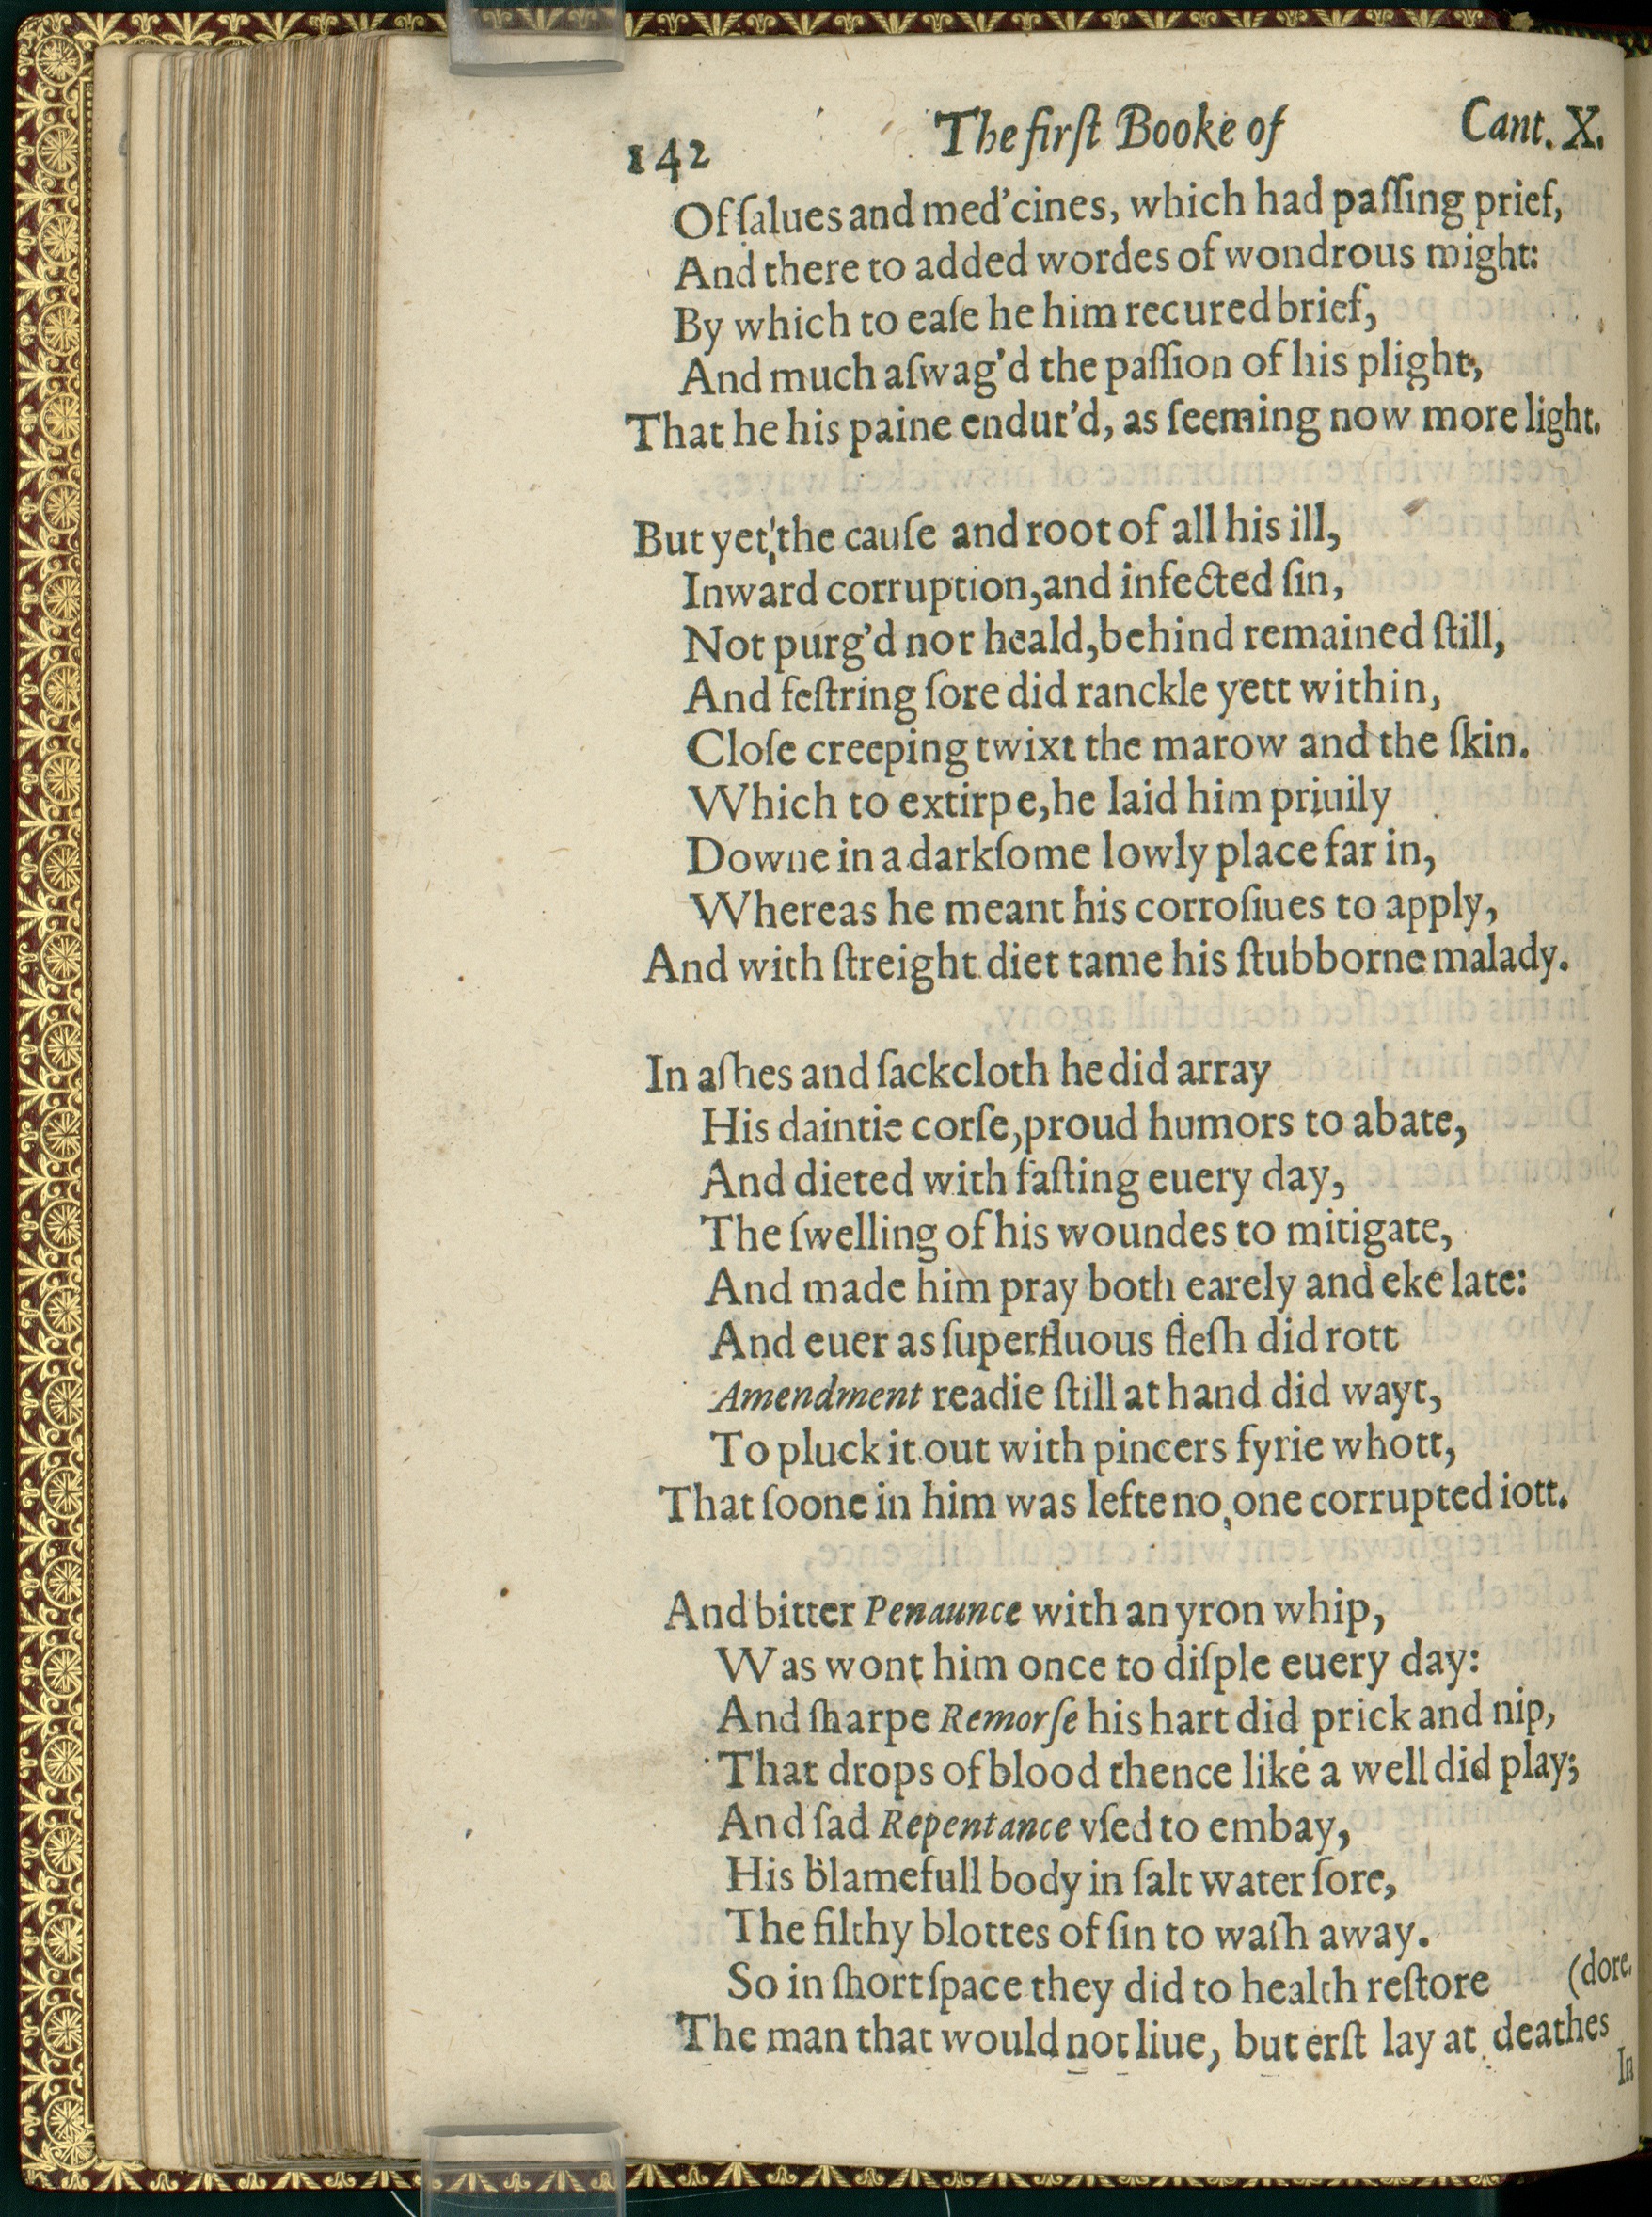 142 The firſt Booke of Cant. X.
Of ſalues and med'cines, which had paſſing prief,
And there to added wordes of wondrous might:
By which to eaſe he him recured brief,
And much aſwag'd the paſſion of his plight,
That he his paine endur'd, as ſeeming now more light.
But yet the cauſe and root of all his ill,
Inward corruption, and infected ſin,
Not purg'd nor heald, behind remained ſtill,
And feſtring ſore did ranckle yett within,
Cloſe creeping twixt the marow and the ſkin.
Which to extirpe, he laid him priuily
Downe in a darkſome lowly place far in,
Whereas he meant his corroſiues to apply,
And with ſtreight diet tame his ſtubborne malady.
In aſhes and ſackcloth he did array
His daintie corſe, proud humors to abate,
And dieted with faſting euery day,
The ſwelling of his woundes to mitigate,
And made him pray both earely and eke late:
And euer as ſuperfluous fleſh did rott
Amendment readie ſtill at hand did wayt,
To pluck it out with pincers fyrie whott,
That ſoone in him was lefte no one corrupted iott.
And bitter Penaunce with an yron whip,
Was wont him once to diſple euery day:
And ſharpe Remorſe his hart did prick and nip,
That drops of blood thence like a well did play;
And ſad Repentance vſed to embay,
His blamefull body in ſalt water ſore,
The filthy blottes of ſin to waſh away.
So in ſhort ſpace they did to health reſtore (dore.
The man that would not liue, but erſt lay at deathes
In